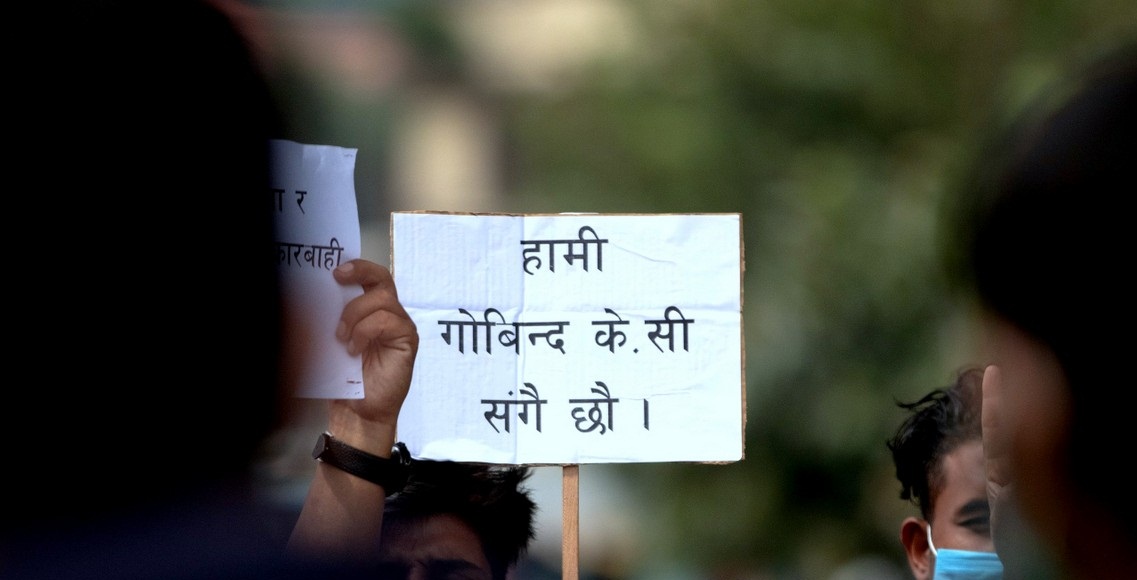 र
कारबाही
हामी
गोबिन्द के.सी
संगै छौ ।